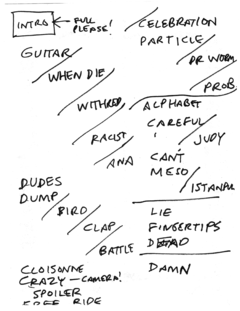 INTRO ← FULL PLEASE!
GUITAR
WHEN DIE
WITHRED
RACIST
ANA
DUDES
DUMP
BIRD
CLAP
BATTLE
CLOISONNE
CRAZY — CAMERA!
SPOILER
FREE RIDE
CELEBRATION
PARTICLE
DR WORM
PROB
ALPHABET
CAREFUL
JUDY
CAN'T
MESO
ISTANBUL
LIE
FINGERTIPS
DAMN